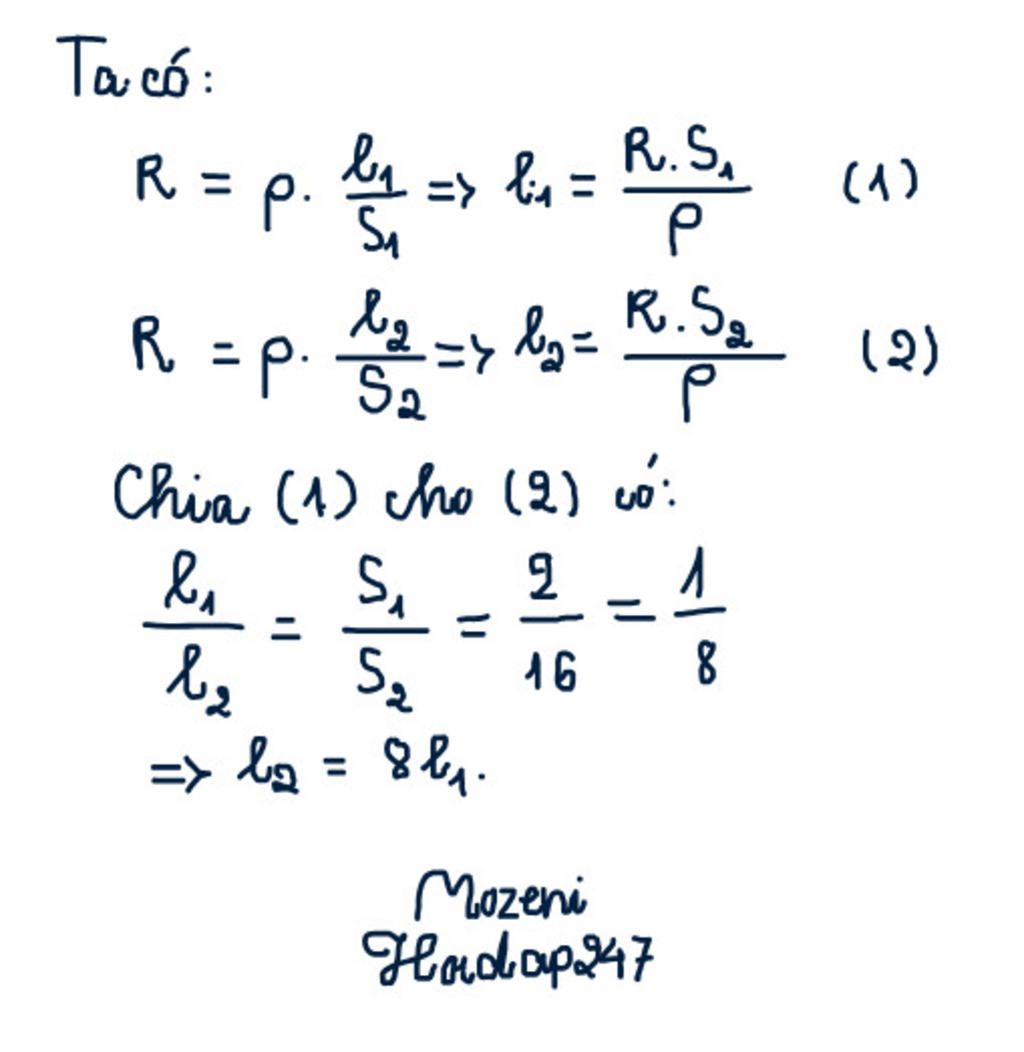 Ta có:
R = ρ. l₁/S₁ => l₁ = R.S₁/ρ (1)
R = ρ. l₂/S₂ => l₂ = R.S₂/ρ (2)
Chia (1) cho (2) có:
l₁/l₂ = S₁/S₂ = 2/16 = 1/8
=> l₂ = 8l₁.
Mozeni
Hoidap247